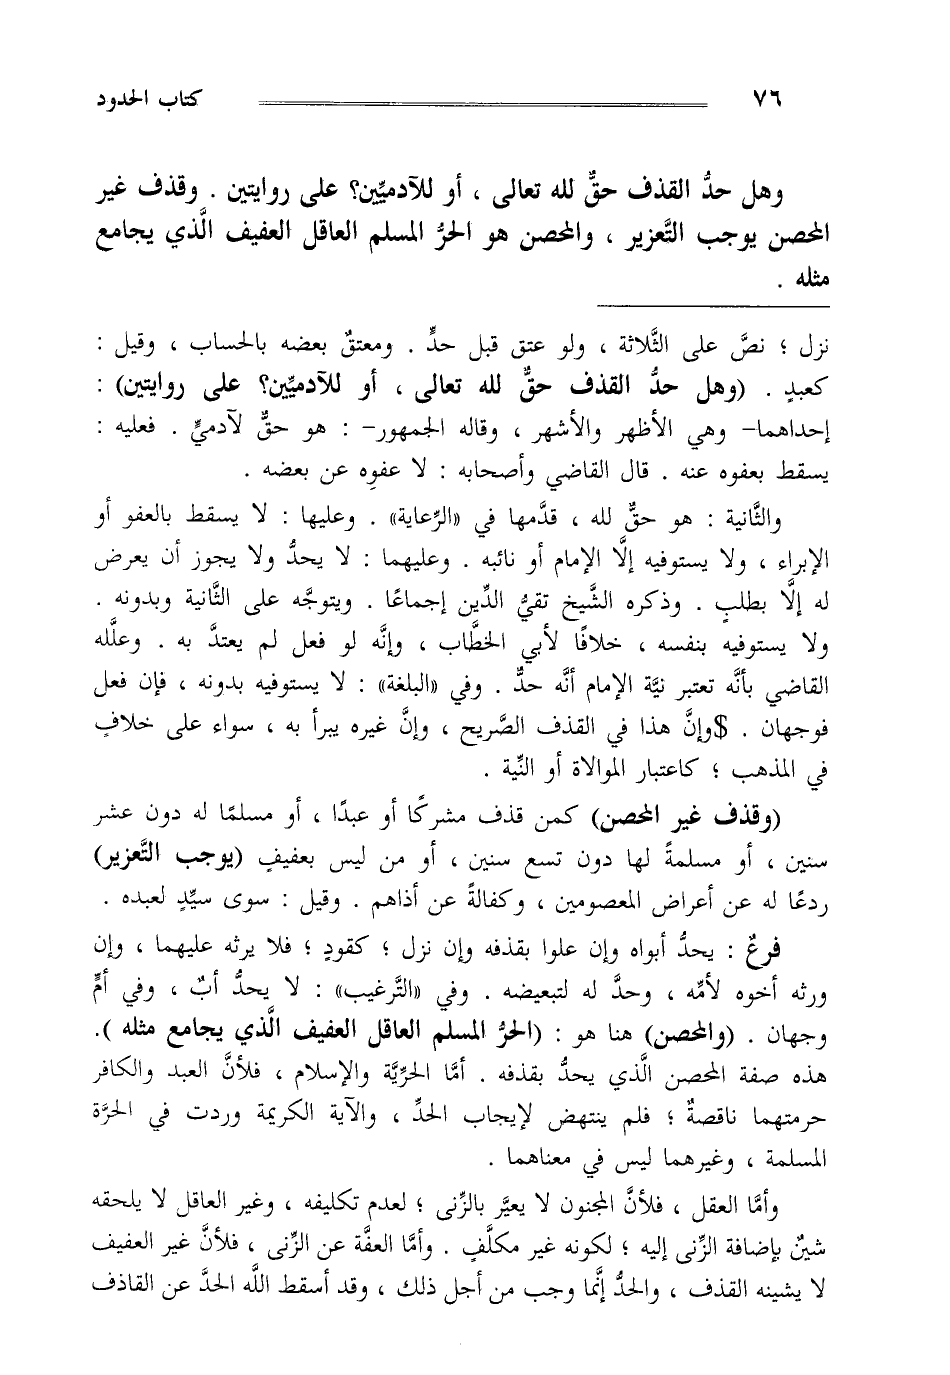 ٧٦ كتاب الحدود
وهل حدُّ القذف حقٌّ لله تعالى ، أو للآدميِّين؟ على روايتين . وقذف غير
المحصن يوجب التَّعزير ، والمحصن هو الحرُّ المسلم العاقل العفيف الَّذي يجامع
مثله .
نزل ؛ نصَّ على الثَّلاثة ، ولو عتق قبل حدٍّ . ومعتقٌ بعضه بالحساب ، وقيل :
كعبدٍ . (وهل حدُّ القذف حقٌّ لله تعالى ، أو للآدميِّين؟ على روايتين) :
إحداهما- وهي الأظهر والأشهر ، وقاله الجمهور- : هو حقٌّ لآدميٍّ . فعليه :
يسقط بعفوه عنه . قال القاضي وأصحابه : لا عفوِه عن بعضه .
والثَّانية : هو حقٌّ لله ، قدَّمها في «الرِّعاية» . وعليها : لا يسقط بالعفو أو
الإبراء ، ولا يستوفيه إلَّا الإمام أو نائبه . وعليهما : لا يحدُّ ولا يجوز أن يعرض
له إلَّا بطلبٍ . وذكره الشَّيخ تقيُّ الدِّين إجماعًا . ويتوجَّه على الثَّانية وبدونه .
ولا يستوفيه بنفسه ، خلافًا لأبي الخطَّاب ، وإنَّه لو فعل لم يعتدَّ به . وعلَّله
القاضي بأنَّه تعتبر نيَّة الإمام أنَّه حدٌّ . وفي «البلغة» : لا يستوفيه بدونه ، فإن فعل
فوجهان . $وإنَّ هذا في القذف الصَّريح ، وإنَّ غيره يبرأ به ، سواء على خلافٍ
في المذهب ؛ كاعتبار الموالاة أو النِّية .
(وقذف غير المحصن) كمن قذف مشركًا أو عبدًا ، أو مسلمًا له دون عشر
سنين ، أو مسلمةً لها دون تسع سنين ، أو من ليس بعفيفٍ (يوجب التَّعزير)
ردعًا له عن أعراض المعصومين ، وكفالةً عن أذاهم . وقيل : سوى سيِّدٍ لعبده .
فرعٌ : يحدُّ أبواه وإن علوا بقذفه وإن نزل ؛ كقودٍ ؛ فلا يرثه عليهما ، وإن
ورثه أخوه لأمِّه ، وحدَّ له لتبعيضه . وفي «التَّرغيب» : لا يحدُّ أبٌ ، وفي أمٍّ
وجهان . (والمحصن) هنا هو : (الحرُّ المسلم العاقل العفيف الَّذي يجامع مثله ).
هذه صفة المحصن الَّذي يحدُّ بقذفه . أمَّا الحرِّيَّة والإسلام ، فلأنَّ العبد والكافر
حرمتهما ناقصةٌ ؛ فلم ينتهض لإيجاب الحدِّ ، والآية الكريمة وردت في الحرَّة
المسلمة ، وغيرهما ليس في معناهما .
وأمَّا العقل ، فلأنَّ المجنون لا يعيَّر بالزِّنى ؛ لعدم تكليفه ، وغير العاقل لا يلحقه
شينٌ بإضافة الزِّنى إليه ؛ لكونه غير مكلَّفٍ . وأمَّا العفَّة عن الزِّنى ، فلأنَّ غير العفيف
لا يشينه القذف ، والحدُّ إنَّما وجب من أجل ذلك ، وقد أسقط اللَّه الحدَّ عن القاذف